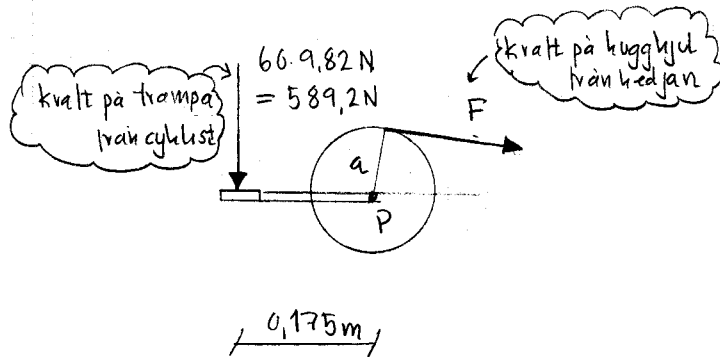 kraft på trampa
från cyklist
60·9,82N
= 589,2N
kraft på kugghjul
från kedjan
F
a
P
0,175m